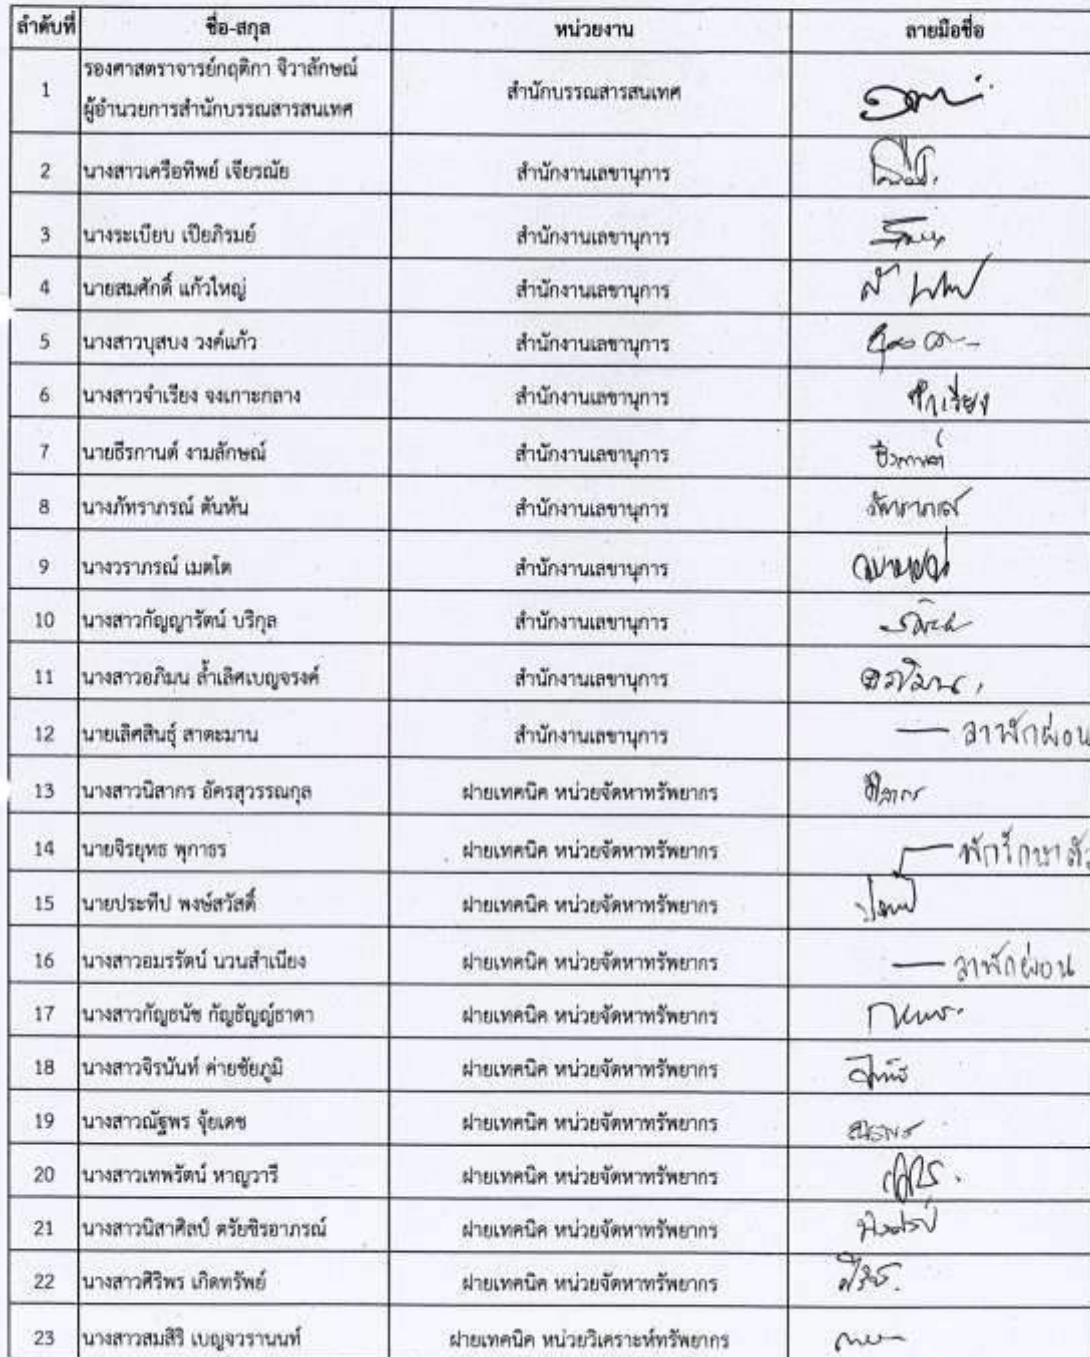 ลำดับที่ ชื่อ-สกุล หน่วยงาน ลายมือชื่อ
1 รองศาสตราจารย์กฤติกา จิวาลักษณ์ สำนักบรรณสารสนเทศ
ผู้อำนวยการสำนักบรรณสารสนเทศ
2 นางสาวเครือทิพย์ เจียรณัย สำนักงานเลขานุการ
3 นางระเบียบ เปียภิรมย์ สำนักงานเลขานุการ
4 นายสมศักดิ์ แก้วใหญ่ สำนักงานเลขานุการ
5 นางสาวบุสบง วงค์แก้ว สำนักงานเลขานุการ
6 นางสาวจำเรียง จงเกาะกลาง สำนักงานเลขานุการ จำเรียง
7 นายธีรกานต์ งามลักษณ์ สำนักงานเลขานุการ ธีรกานต์
8 นางภัทราภรณ์ ตันหัน สำนักงานเลขานุการ ภัทราภรณ์
9 นางวราภรณ์ เมตโต สำนักงานเลขานุการ
10 นางสาวกัญญารัตน์ บริกุล สำนักงานเลขานุการ
11 นางสาวอภิมน ล้ำเลิศเบญจรงค์ สำนักงานเลขานุการ
12 นายเลิศสินธุ์ สาตะมาน สำนักงานเลขานุการ — ลาพักผ่อน
13 นางสาวนิสากร อัครสุวรรณกุล ฝ่ายเทคนิค หน่วยจัดหาทรัพยากร
14 นายจิรยุทธ พุกาธร ฝ่ายเทคนิค หน่วยจัดหาทรัพยากร — พักรักษาตัว
15 นายประทีป พงษ์สวัสดิ์ ฝ่ายเทคนิค หน่วยจัดหาทรัพยากร
16 นางสาวอมรรัตน์ นวนสำเนียง ฝ่ายเทคนิค หน่วยจัดหาทรัพยากร — ลาพักผ่อน
17 นางสาวกัญธนัช กัญธัญญ์ธาดา ฝ่ายเทคนิค หน่วยจัดหาทรัพยากร
18 นางสาวจิรนันท์ ค่ายชัยภูมิ ฝ่ายเทคนิค หน่วยจัดหาทรัพยากร
19 นางสาวณัฐพร จุ้ยเดช ฝ่ายเทคนิค หน่วยจัดหาทรัพยากร
20 นางสาวเทพรัตน์ หาญวารี ฝ่ายเทคนิค หน่วยจัดหาทรัพยากร
21 นางสาวนิสาศิลป์ ตรัยชิรอาภรณ์ ฝ่ายเทคนิค หน่วยจัดหาทรัพยากร
22 นางสาวศิริพร เกิดทรัพย์ ฝ่ายเทคนิค หน่วยจัดหาทรัพยากร
23 นางสาวสมสิริ เบญจวรานนท์ ฝ่ายเทคนิค หน่วยวิเคราะห์ทรัพยากร